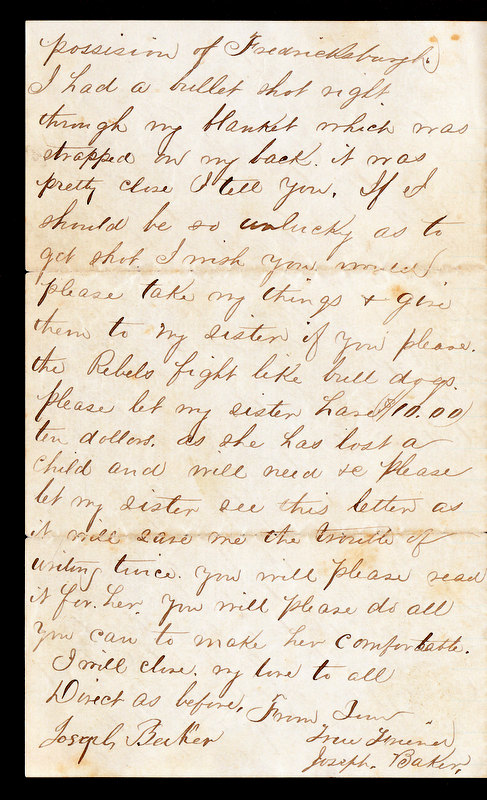 possision of Fredricksburgh.
I had a bullet shot right
through my blanket which was
strapped on my back. it was
pretty close I tell you. If I
should be so unlucky as to
get shot I wish you would
please take my things & give
them to my sister if you please.
the Rebels fight like bull dogs.
please let my sister have $10.00
ten dollors. as she has lost a
child and will need &c please
let my sister see this letter as
it will save me the trouble of
writing twice. you will please read
it for her. you will please do all
you can to make her comfortable.
I will close. my love to all
Direct as before. From Your
Joseph Baker True Friend
Joseph. Baker.